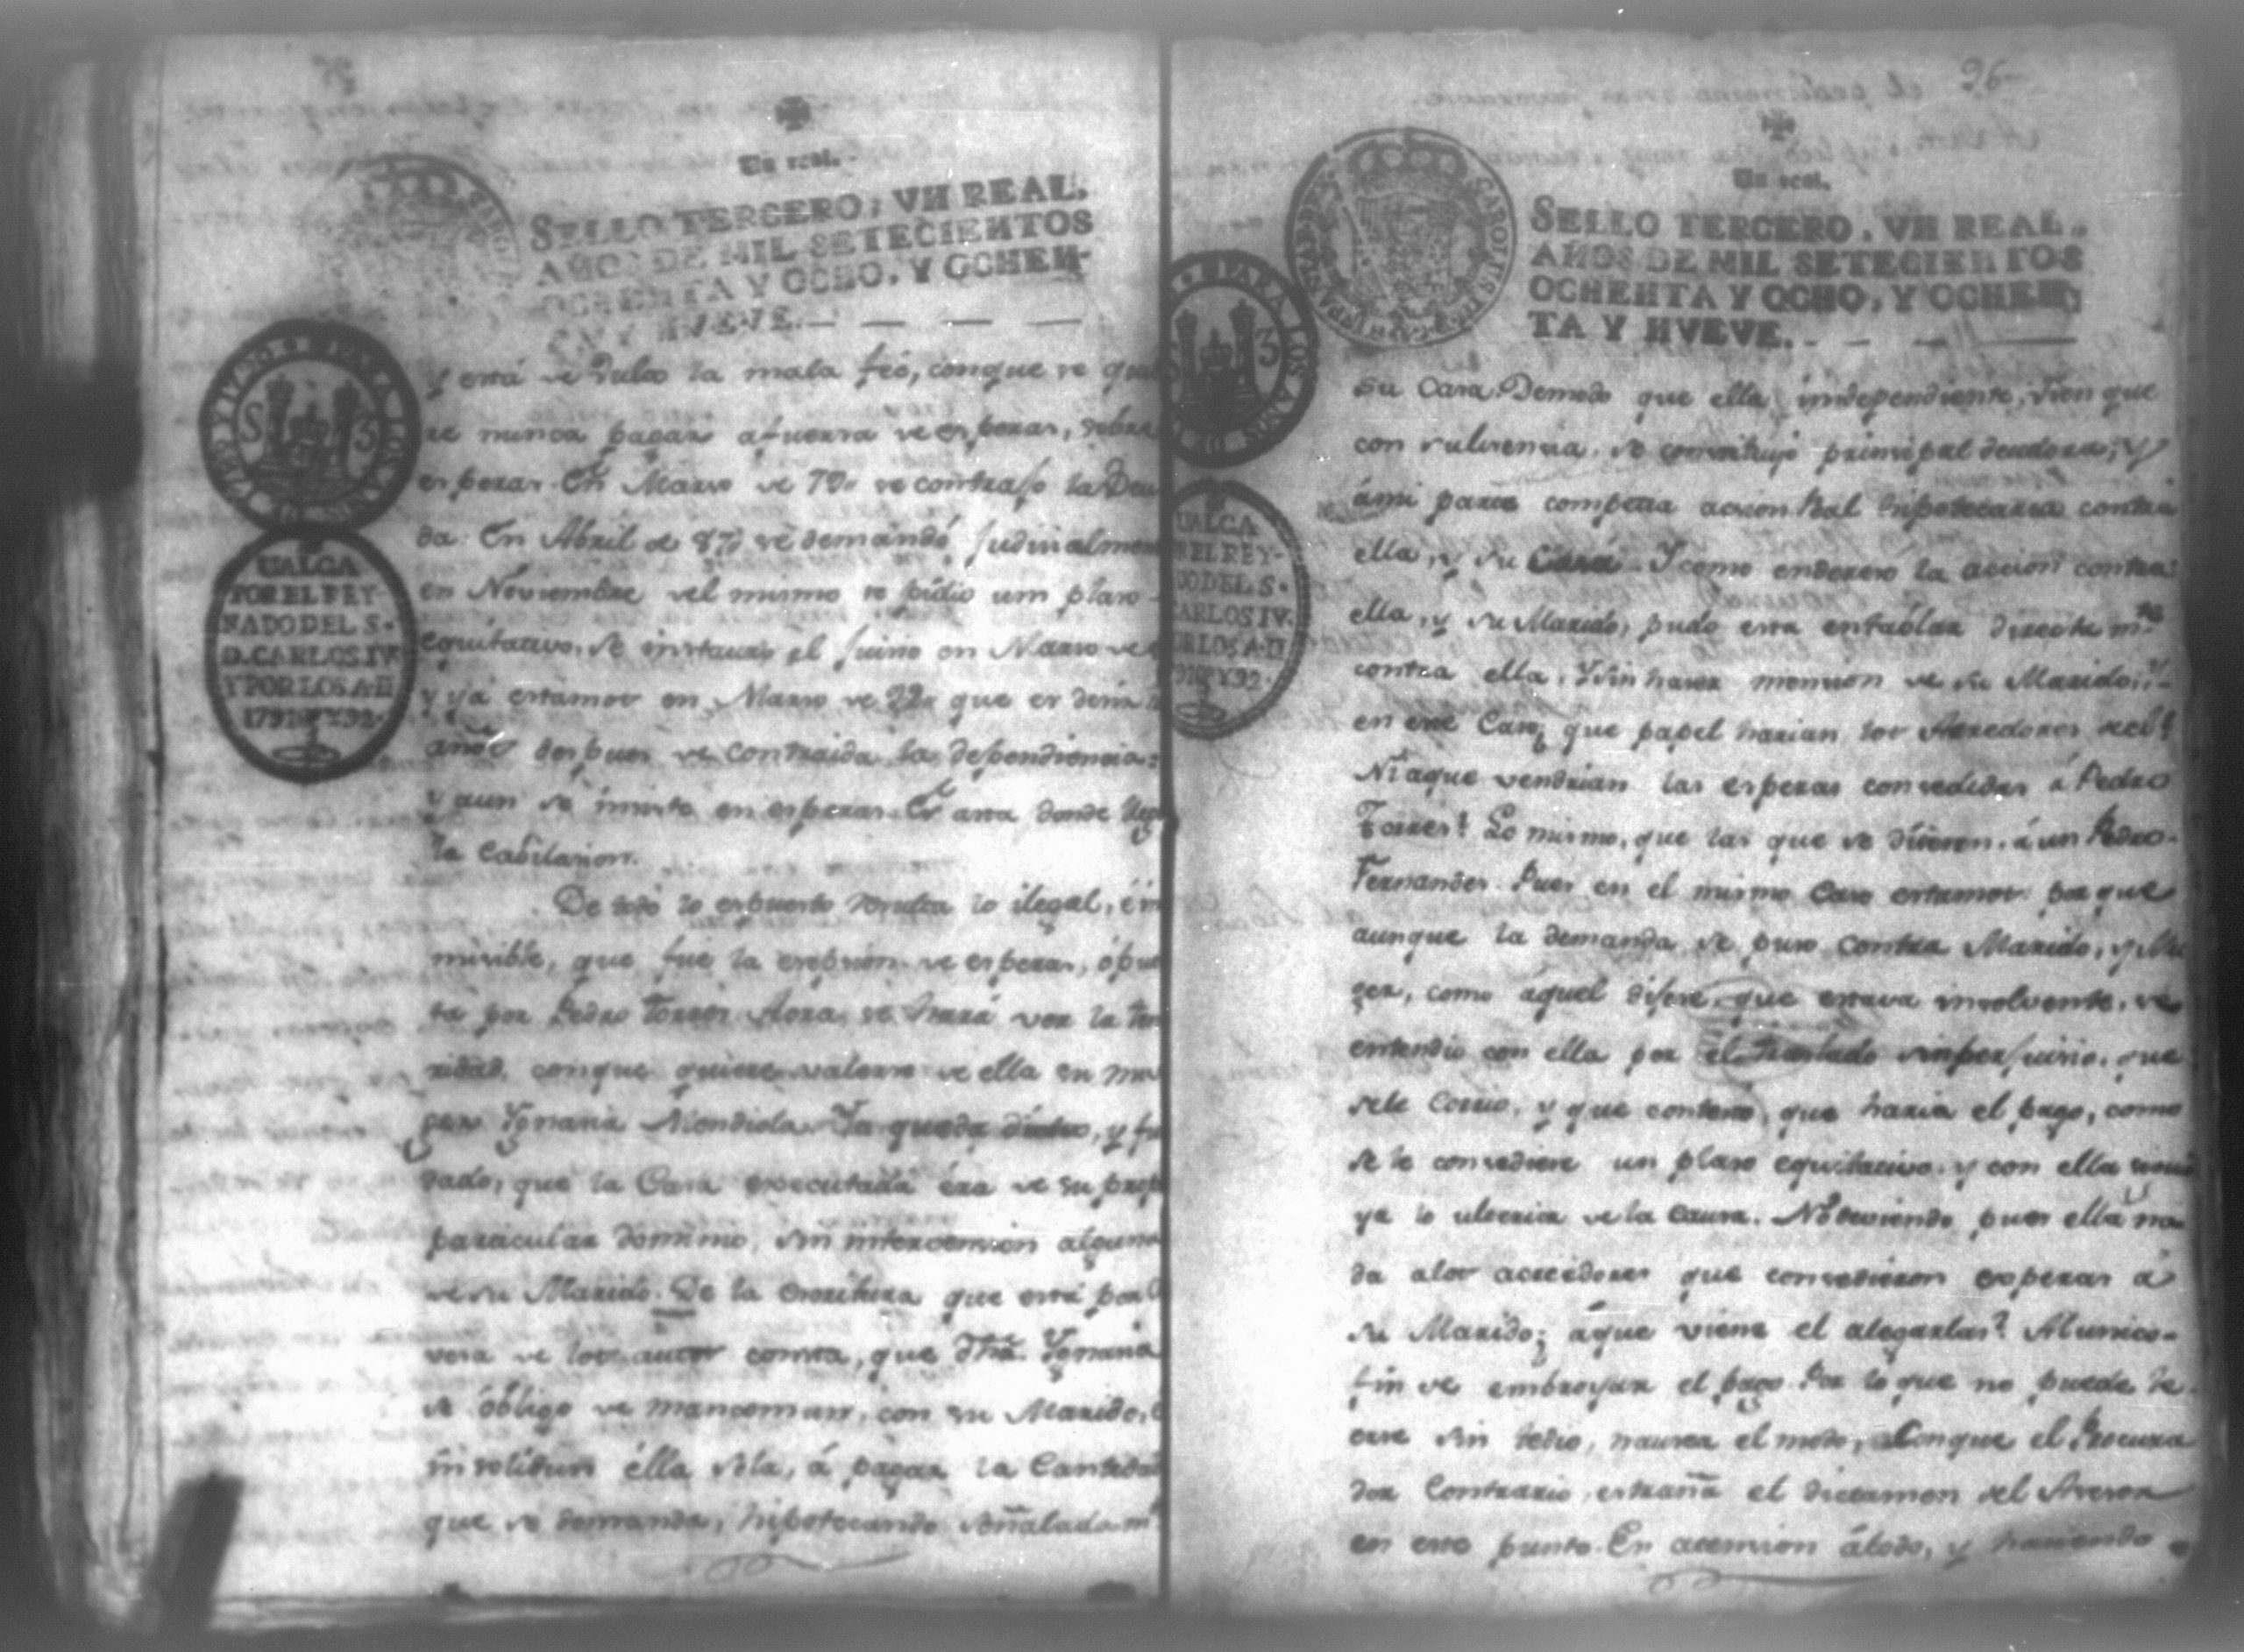 Un real.
SELLO TERCERO, VN REAL,
AÑOS DE MIL SETECIENTOS
OCHENTA Y OCHO, Y OCHEN-
TA Y NVEVE.
PARA LOS AÑOS DE
S 3
VALGA
POR EL REY-
NADO DEL S.
D. CARLOS IV.
Y POR LOS A. D
1791 Y 92.
y está se dulto la mala feé, conque se quie
re nunca pagar afuerza de esperas, sobre
esperas. En Marzo de 79 se contrajo la Deu
da: En Abril de 87 se demandó judicialmen
en Noviembre del mismo se pidio un plazo
equitativo, se instauró el juicio en Marzo de
y yá estamos en Marzo de 92 que es decir
años despues de contraida la dependiencia:
y aun se insiste en esperas. Es asta donde llega
la Cabilacion.
De todo lo espuesto resulta lo ilegal, é in
misible, que fue la esepcion de esperas, opues
ta por Pedro Torres. Aora se hará ver la tem
ridad, conque quiere valerse de ella su mu
ger Ignacia Mendiola. Ya queda dicho, y fu
dado, que la Casa executada éra de su prop
particular dominio, sin intervencion alguna
de su Marido. De la escritura que está por
vesa de los autos consta, que dha. Ignacia
se óbligó de mancomun, con su Marido, é
insolidum élla sola, á pagar la Cantidad
que se demanda, hipotecando señaladamte
96
Un real.
SELLO TERCERO, VN REAL,
AÑOS DE MIL SETECIENTOS
OCHENTA Y OCHO, Y OCHEN-
TA Y NVEVE.
CAROLUS
PARA LOS AÑOS DE
3
VALGA
POR EL REY-
NADO DEL S.
CARLOS IV.
POR LOS A. D
91 Y 92.
su Casa. Demodo que ella independiente, vien que
con su licencia, se constituyó principal deudora; y
ámi parte competia accion Real hipotecaria contra
ella, y su Casa. Y como enderesó la accion contra
ella, y su Marido, pudo esta entablar directamte
contra ella, y sin hacer mencion de su Marido; y
en ese Caso, que papel harian los Acredores de él?
Ni aque vendrian las esperas concedidas á Pedro
Torres? Lo mismo, que las que se dieron á un Pedro
Fernandes. Pues en el mismo Caso estamos: porque
aunque la demanda se puso contra Marido, y Mu
ger, como áquel dijese, que estava insolvente, se
entendio con ella por el traslado sinperjuicio, que
sele Corrió, y que contestó, que haria el pago, como
se le concediese un plazo equitativo. y con ella
ya lo ulterior de la Causa. No deviendo pues ella na
da alos acreedores que concedieron esperas á
su Marido; áque viene el alegarlas? Alunico
fin de embroyar el pago. Por lo que no puede le
erse sin tedio, nausea el modo, Conque el Procura
dor Contrario, estraña el dictamen del Asesor
en este punto. En atencion átodo, y haciendo